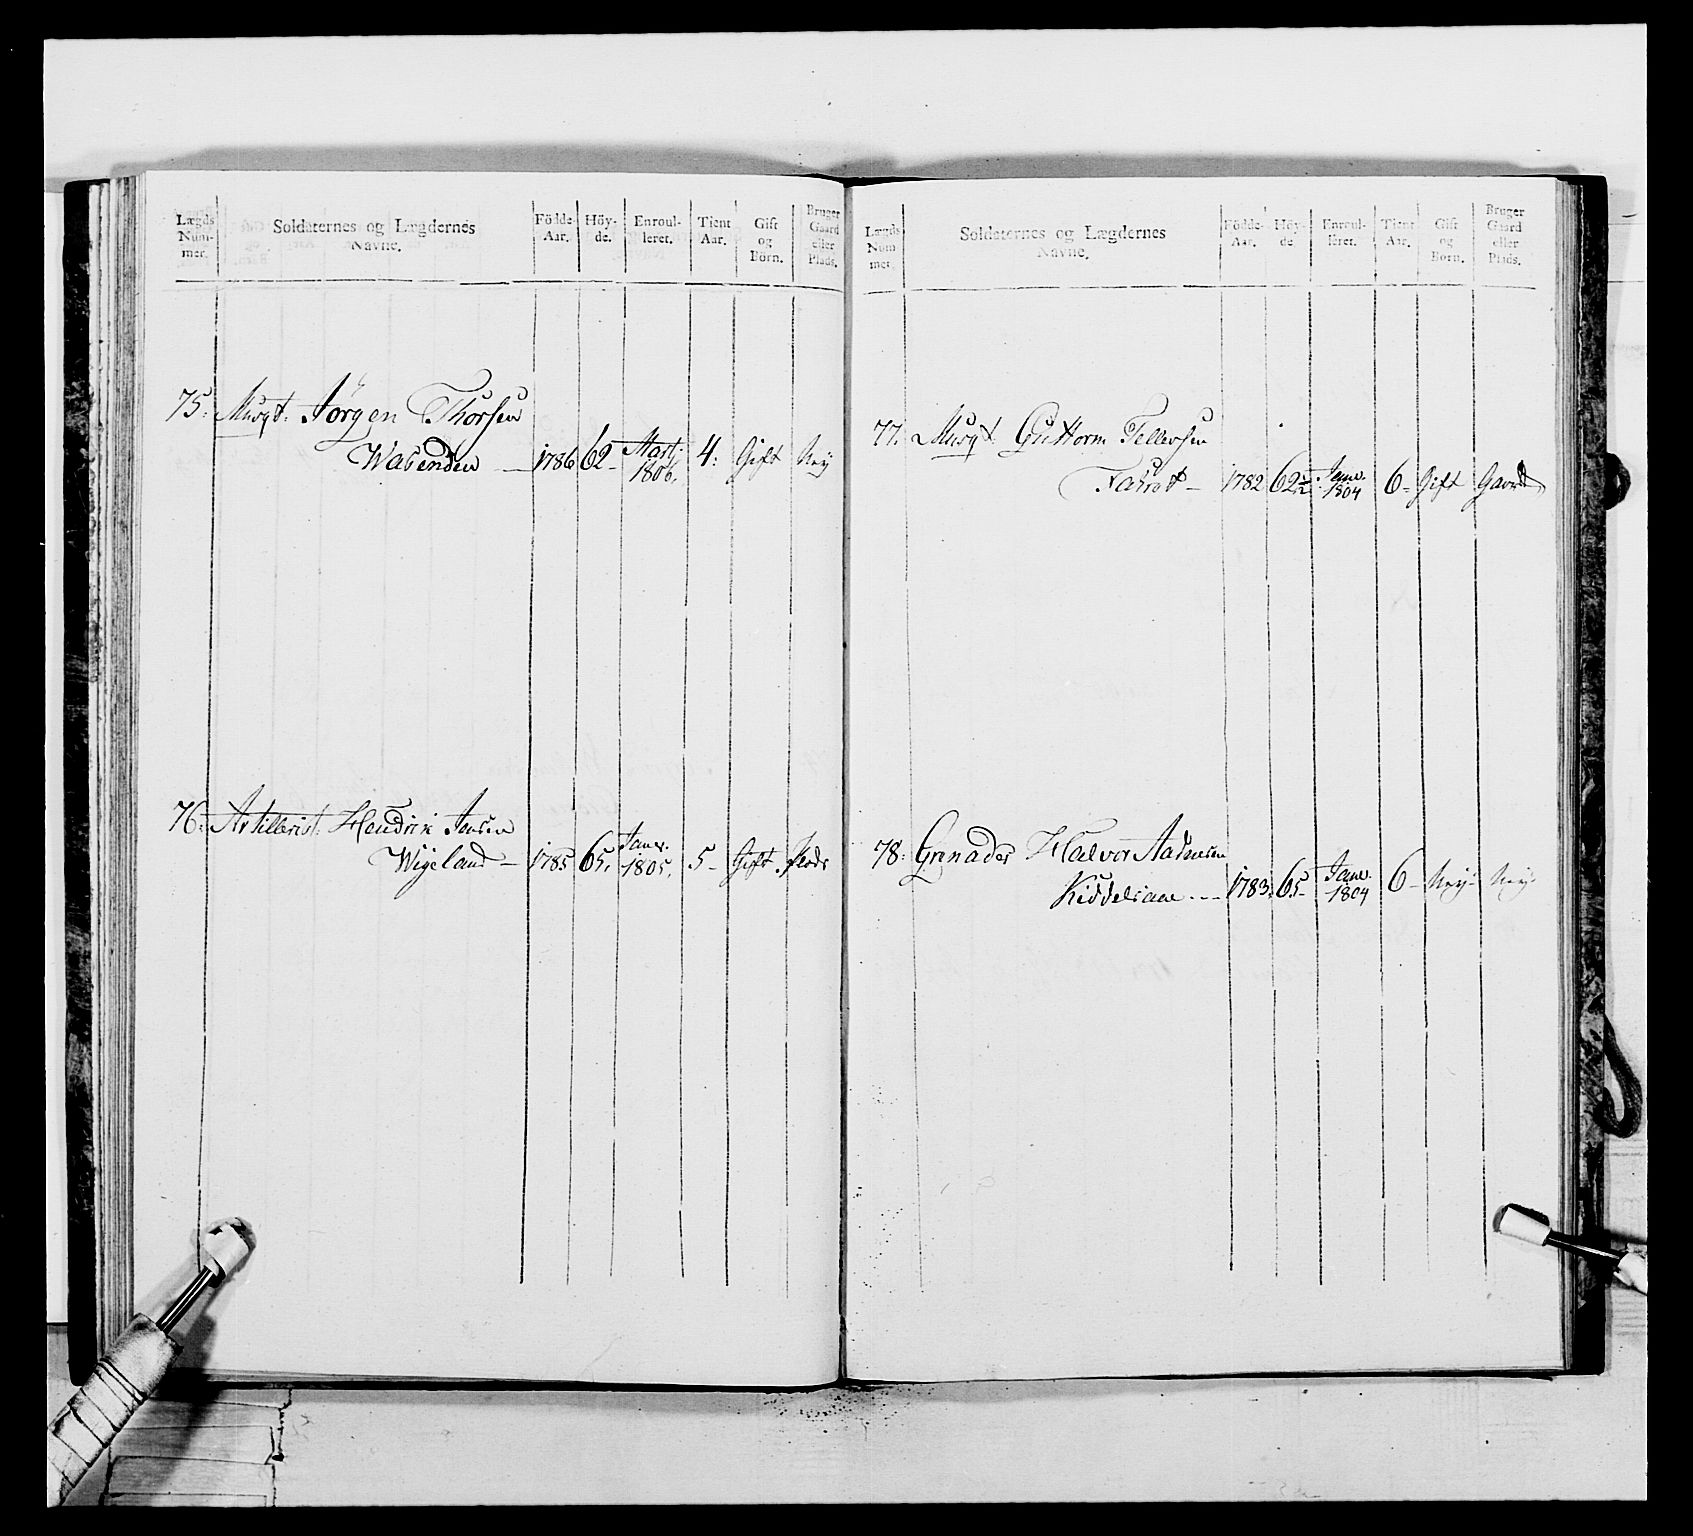 Lægds Num- mer.
Soldaternes og Lægdernes Navne.
Födde- Aar.
Höy- de.
Enroul- leret.
Tient Aar.
Gift og Börn.
Bruger Gaard eller Plads.
75. Musqt: Jörgen Thorsen
Wabenden — 1786 62 – Marti 1806. 4: Gift Neÿ
76. Artillerist: Hendrik Jensen
Wigeland — 1785 65. Janv. 1805. 5 – Gift Plads
Lægds Num mer.
Soldaternes og Lægdernes Navne.
Födde- Aar.
Höy- de
Enroul- leret.
Tient Aar.
Gift og Börn.
Bruger Gaard eller Plads.
77. Musqt: Guttorm Tellevsen
1782 62½ Janv. 1804 6 – Gift Gaard
78: Grenader Halvor Aadnesen
Kiddelsaae 1783. 65 – Janv. 1804 6 – Neÿ – Neÿ